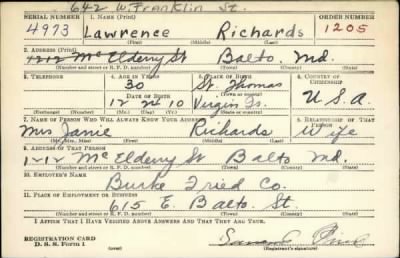 642 W. Franklin St.
SERIAL NUMBER 1. NAME (Print) ORDER NUMBER
4973 Lawrence Richards 1205
(First) (Middle) (Last)
2. ADDRESS (Print)
1212 McElderry St Balto Md.
(Number and street or R. F. D. number) (Town) (County) (State)
3. TELEPHONE 4. AGE IN YEARS 5. PLACE OF BIRTH 6. COUNTRY OF CITIZENSHIP
30 St. Thomas
DATE OF BIRTH (Town or county)
12 24 10 Virgin Is. U.S.A.
(Exchange) (Number) (Mo.) (Day) (Yr.) (State or country)
7. NAME OF PERSON WHO WILL ALWAYS KNOW YOUR ADDRESS 8. RELATIONSHIP OF THAT PERSON
Mrs Janie Richards Wife
(Mr., Mrs., Miss) (First) (Middle) (Last)
9. ADDRESS OF THAT PERSON
1212 McElderry St Balto Md.
(Number and street or R. F. D. number) (Town) (County) (State)
10. EMPLOYER'S NAME
Burke Fried Co.
11. PLACE OF EMPLOYMENT OR BUSINESS
615 E. Balto. St.
(Number and street or R. F. D. number) (Town) (County) (State)
I AFFIRM THAT I HAVE VERIFIED ABOVE ANSWERS AND THAT THEY ARE TRUE.
REGISTRATION CARD
D. S. S. Form 1 (Registrant's signature)